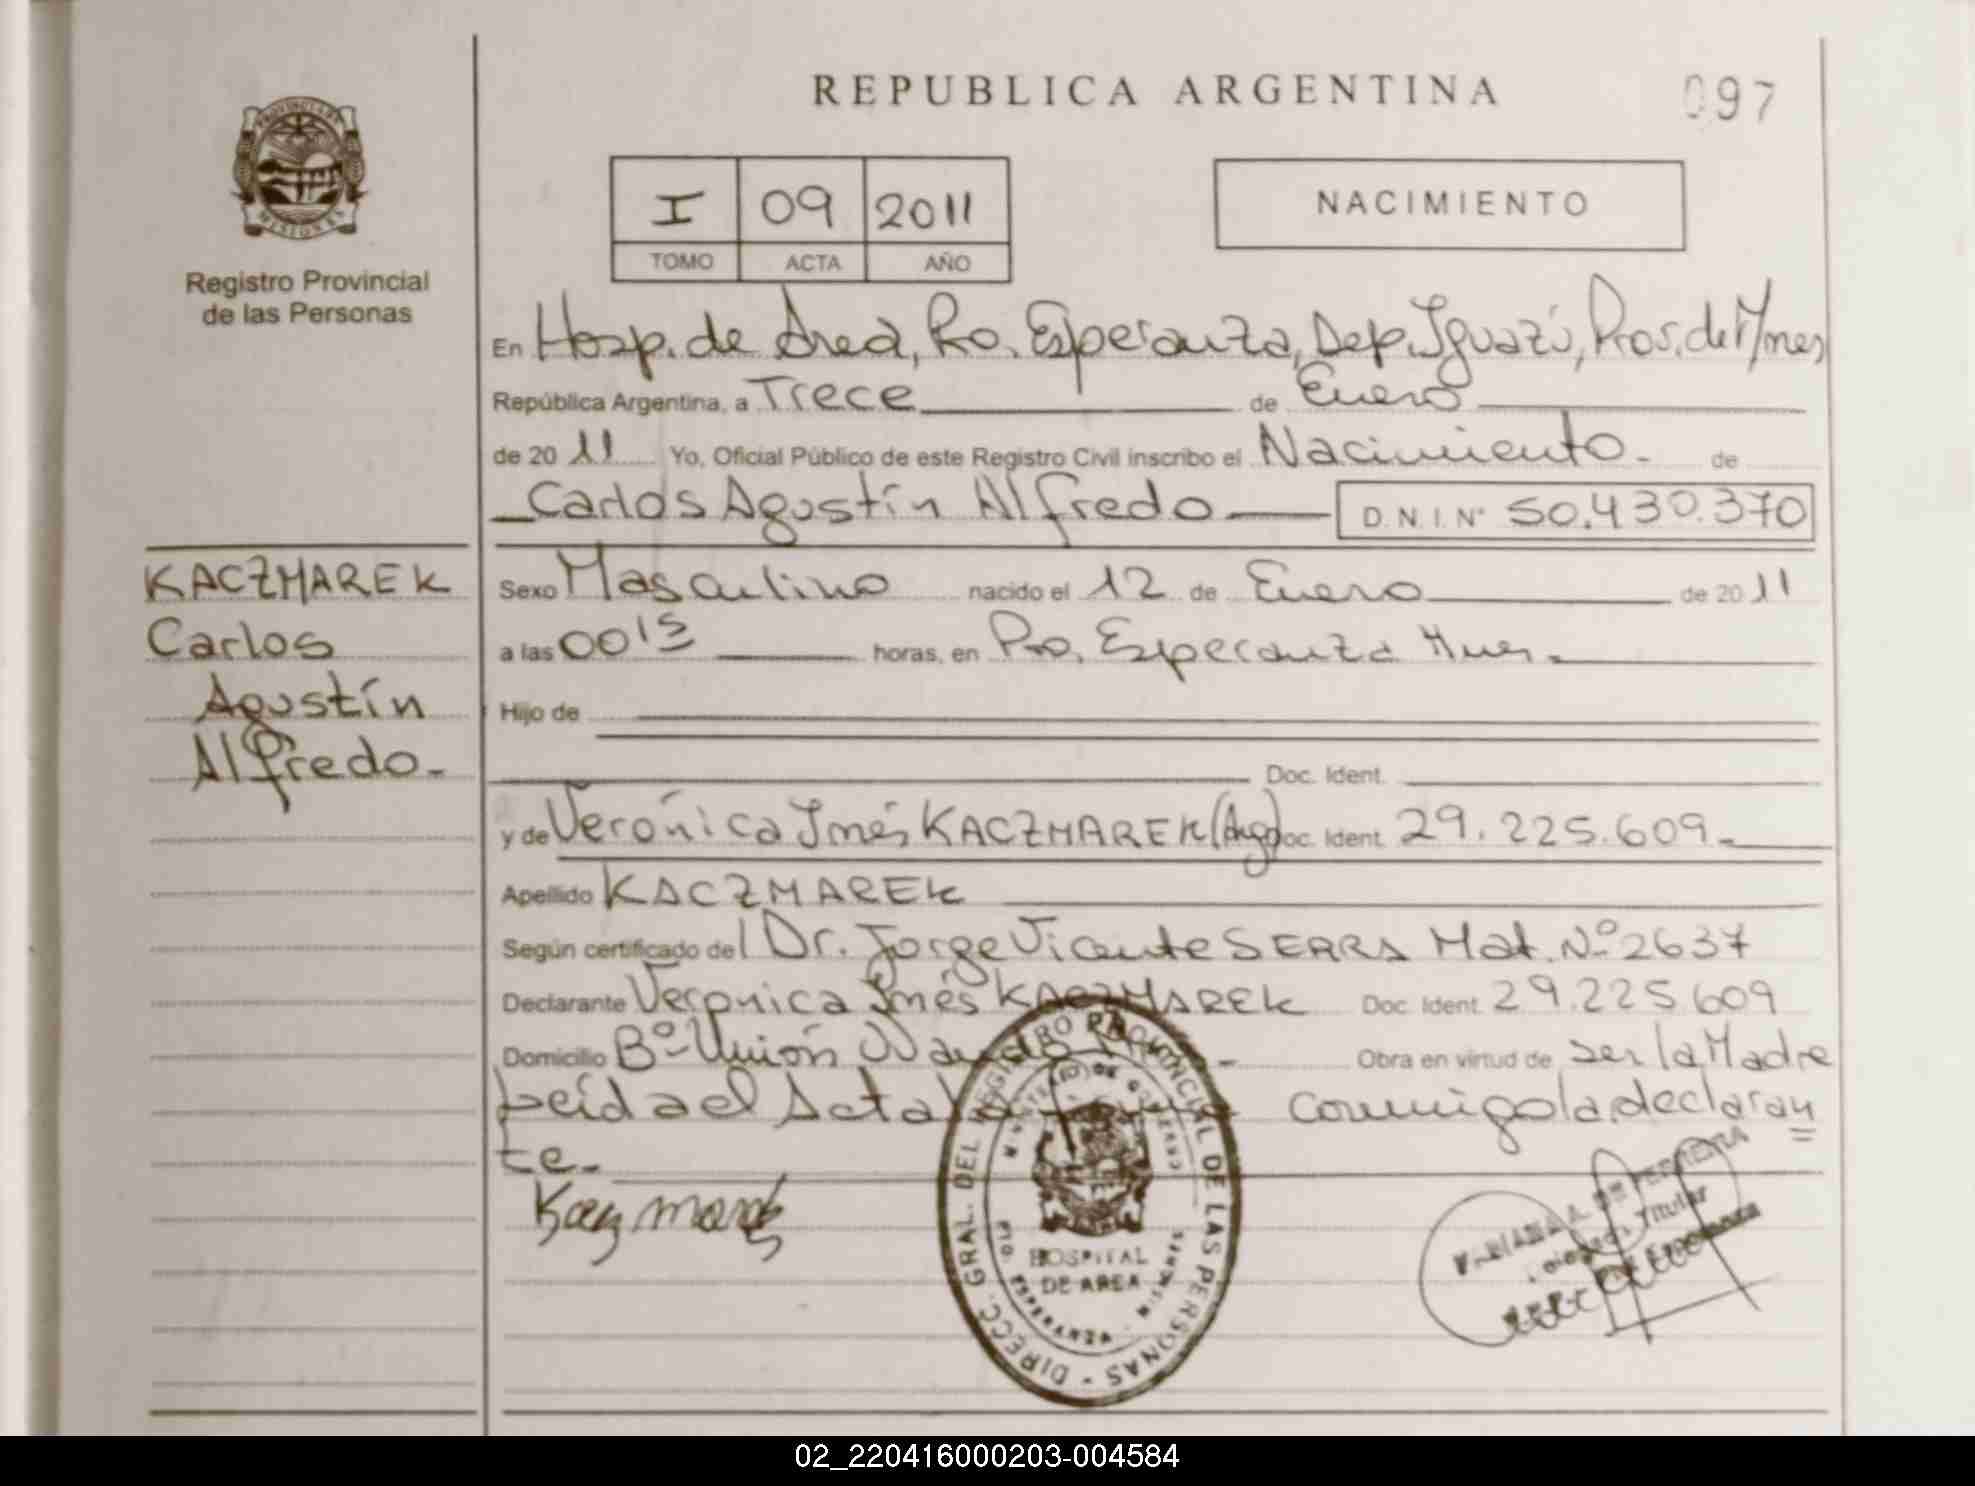 REPUBLICA ARGENTINA
097
PROVINCIA DE
MISIONES
Registro Provincial
de las Personas
I 09 2011
TOMO ACTA AÑO
NACIMIENTO
En Hosp. de Area, Pto. Esperanza, Dep. Iguazú, Prov. de M/nes
República Argentina, a Trece de Enero
de 2011 Yo, Oficial Público de este Registro Civil inscribo el Nacimiento.- de
Carlos Agustín Alfredo D.N.I. Nº 50.430.370
KACZMAREK
Carlos
Agustín
Alfredo.-
Sexo Masculino nacido el 12 de Enero de 2011
a las 0015 horas, en Pto. Esperanza Mnes.-
Hijo de
Doc. Ident.
y de Verónica Inés KACZMAREK (Arg) Doc. Ident. 29.225.609.-
Apellido KACZMAREK
Según certificado del Dr. Jorge Vicente SERRA Mat. Nº 2637
Declarante Veronica Inés KACZMAREK Doc. Ident. 29.225.609
Domicilio Bº Unión Wanda Obra en virtud de ser la Madre
Leída el Acta la conmigo la declaran
te.-
Kaczmarek
DIRECC. GRAL. DEL REGISTRO PROVINCIAL DE LAS PERSONAS
MINISTERIO DE GOBIERNO
HOSPITAL
DE AREA
PTO. ESPERANZA - MISIONES
A. DE FERREYRA
Titular
Esperanza
02_220416000203-004584